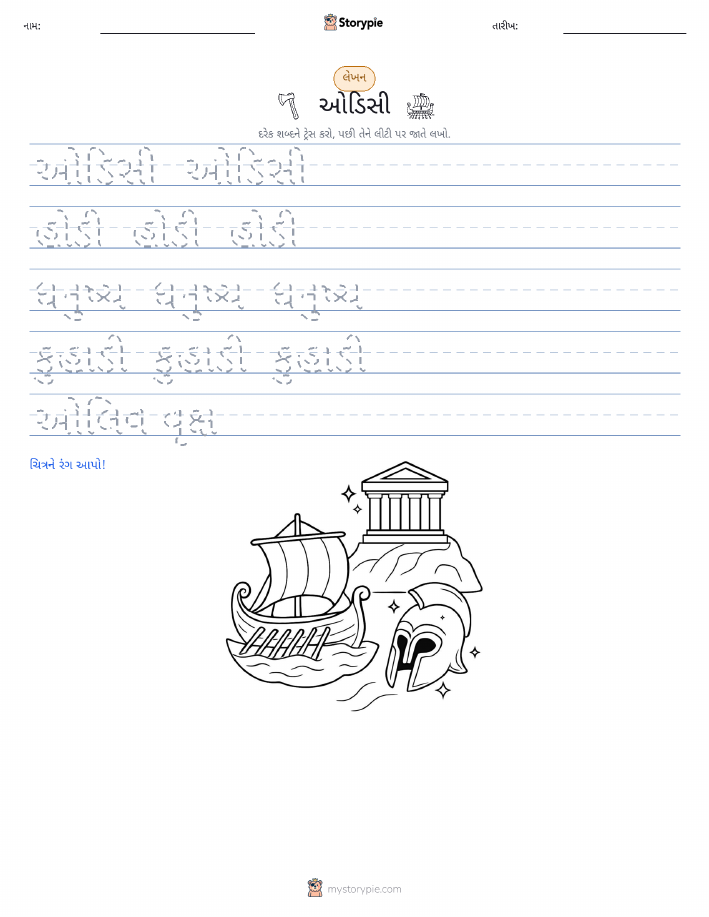 નામ: Storypie તારીખ:
લેખન
ઓડિસી
દરેક શબ્દને ટ્રેસ કરો, પછી તેને લીટી પર જાતે લખો.
ઓડિસી ઓડિસી
હોડી હોડી હોડી
ધનુષ્ય ધનુષ્ય ધનુષ્ય
કુહાડી કુહાડી કુહાડી
ઓલિવ વૃક્ષ
ચિત્રને રંગ આપો!
mystorypie.com